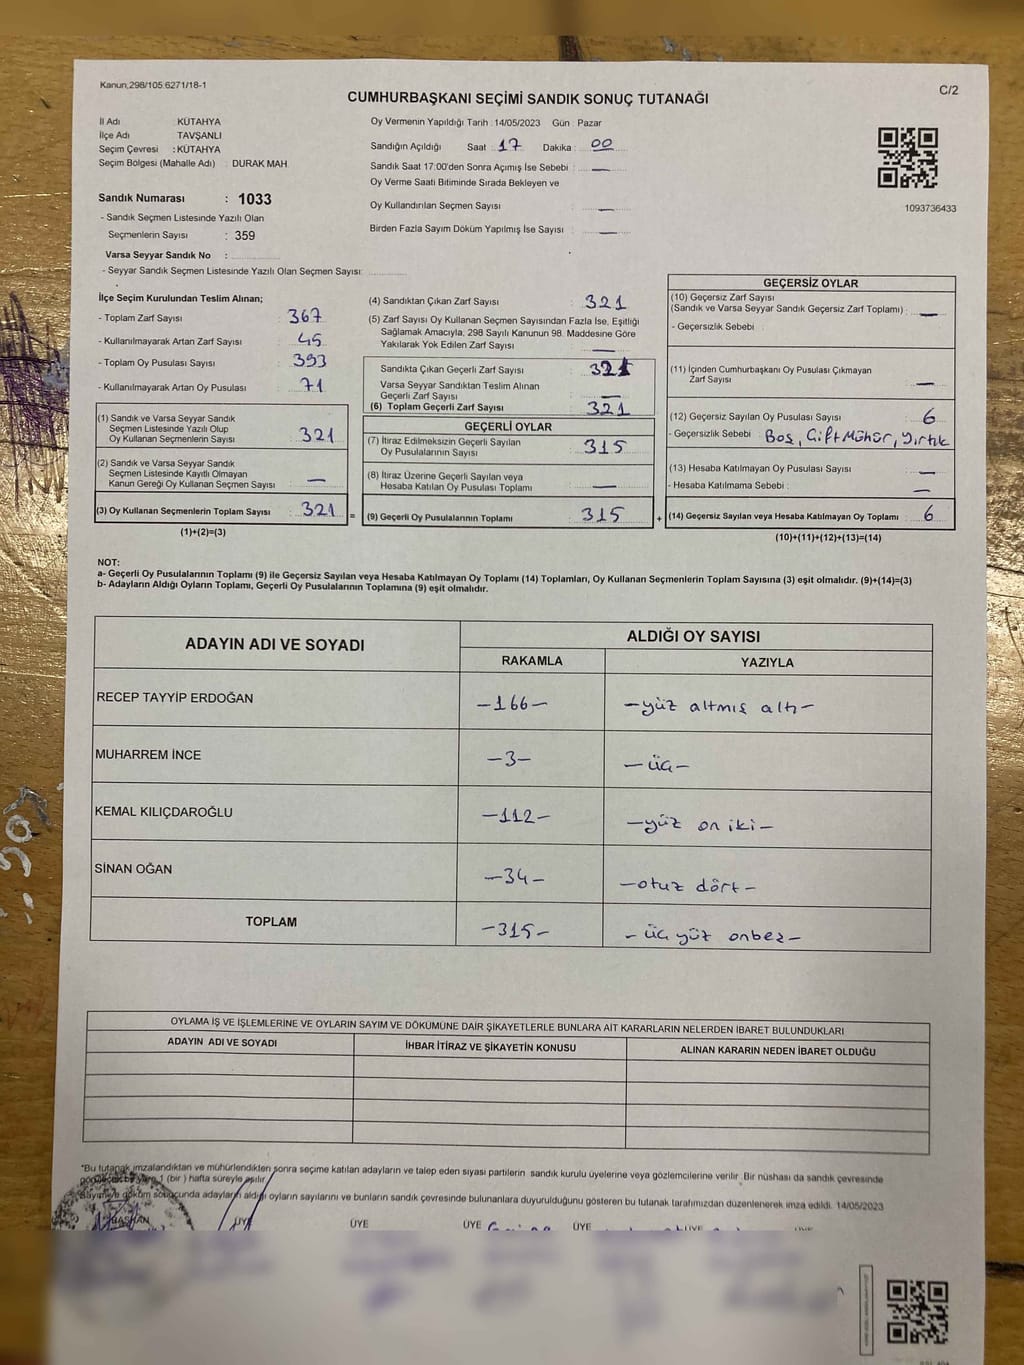 Kanun,298/105.6271/18-1
C/2
CUMHURBAŞKANI SEÇİMİ SANDIK SONUÇ TUTANAĞI
İl Adı : KÜTAHYA
İlçe Adı TAVŞANLI
Seçim Çevresi : KÜTAHYA
Seçim Bölgesi (Mahalle Adı) : DURAK MAH.
Sandık Numarası : 1033
- Sandık Seçmen Listesinde Yazılı Olan
Seçmenlerin Sayısı : 359
Varsa Seyyar Sandık No :
- Seyyar Sandık Seçmen Listesinde Yazılı Olan Seçmen Sayısı:
Oy Vermenin Yapıldığı Tarih : 14/05/2023 Gün : Pazar
Sandığın Açıldığı Saat : 17 Dakika : 00
Sandık Saat 17:00'den Sonra Açımış İse Sebebi : —
Oy Verme Saati Bitiminde Sırada Bekleyen ve
Oy Kullandırılan Seçmen Sayısı —
Birden Fazla Sayım Döküm Yapılmış İse Sayısı : —
1093736433
İlçe Seçim Kurulundan Teslim Alınan;
- Toplam Zarf Sayısı : 367
- Kullanılmayarak Artan Zarf Sayısı : 45
- Toplam Oy Pusulası Sayısı : 393
- Kullanılmayarak Artan Oy Pusulası : 71
(1) Sandık ve Varsa Seyyar Sandık
Seçmen Listesinde Yazılı Olup
Oy Kullanan Seçmenlerin Sayısı : 321
(2) Sandık ve Varsa Seyyar Sandık
Seçmen Listesinde Kayıtlı Olmayan
Kanun Gereği Oy Kullanan Seçmen Sayısı : —
(3) Oy Kullanan Seçmenlerin Toplam Sayısı : 321 =
(1)+(2)=(3)
(4) Sandıktan Çıkan Zarf Sayısı : 321
(5) Zarf Sayısı Oy Kullanan Seçmen Sayısından Fazla İse, Eşitliği
Sağlamak Amacıyla, 298 Sayılı Kanunun 98. Maddesine Göre
Yakılarak Yok Edilen Zarf Sayısı : —
Sandıkta Çıkan Geçerli Zarf Sayısı : 321
Varsa Seyyar Sandıktan Teslim Alınan
Geçerli Zarf Sayısı : —
(6) Toplam Geçerli Zarf Sayısı : 321
GEÇERLİ OYLAR
(7) İtiraz Edilmeksizin Geçerli Sayılan
Oy Pusulalarının Sayısı : 315
(8) İtiraz Üzerine Geçerli Sayılan veya
Hesaba Katılan Oy Pusulası Toplamı : —
(9) Geçerli Oy Pusulalarının Toplamı : 315 +
GEÇERSİZ OYLAR
(10) Geçersiz Zarf Sayısı
(Sandık ve Varsa Seyyar Sandık Geçersiz Zarf Toplamı) : —
- Geçersizlik Sebebi :
(11) İçinden Cumhurbaşkanı Oy Pusulası Çıkmayan
Zarf Sayısı : —
(12) Geçersiz Sayılan Oy Pusulası Sayısı : 6
- Geçersizlik Sebebi : Boş, Çift Mühür, Yırtık
(13) Hesaba Katılmayan Oy Pusulası Sayısı : —
- Hesaba Katılmama Sebebi : —
(14) Geçersiz Sayılan veya Hesaba Katılmayan Oy Toplamı : 6
(10)+(11)+(12)+(13)=(14)
NOT:
a- Geçerli Oy Pusulalarının Toplamı (9) ile Geçersiz Sayılan veya Hesaba Katılmayan Oy Toplamı (14) Toplamları, Oy Kullanan Seçmenlerin Toplam Sayısına (3) eşit olmalıdır. (9)+(14)=(3)
b- Adayların Aldığı Oyların Toplamı, Geçerli Oy Pusulalarının Toplamına (9) eşit olmalıdır.
ADAYIN ADI VE SOYADI ALDIĞI OY SAYISI
RAKAMLA YAZIYLA
RECEP TAYYİP ERDOĞAN -166- -yüz altmış altı-
MUHARREM İNCE -3- -üç-
KEMAL KILIÇDAROĞLU -112- -yüz on iki-
SİNAN OĞAN -34- -otuz dört-
TOPLAM -315- -üç yüz onbeş-
OYLAMA İŞ VE İŞLEMLERİNE VE OYLARIN SAYIM VE DÖKÜMÜNE DAİR ŞİKAYETLERLE BUNLARA AİT KARARLARIN NELERDEN İBARET BULUNDUKLARI
ADAYIN ADI VE SOYADI İHBAR İTİRAZ VE ŞİKAYETİN KONUSU ALINAN KARARIN NEDEN İBARET OLDUĞU
"Bu tutanak imzalandıktan ve mühürlendikten sonra seçime katılan adayların ve talep eden siyası partilerin sandık kurulu üyelerine veya gözlemcilerine verilir. Bir nüshası da sandık çevresinde
1 (bir) hafta süreyle asılır.
Sayım ve döküm sonucunda adayların aldığı oyların sayılarını ve bunların sandık çevresinde bulunanlara duyurulduğunu gösteren bu tutanak tarafımızdan düzenlenerek imza edildi. 14/05/2023
BAŞKAN ÜYE ÜYE ÜYE ÜYE ÜYE